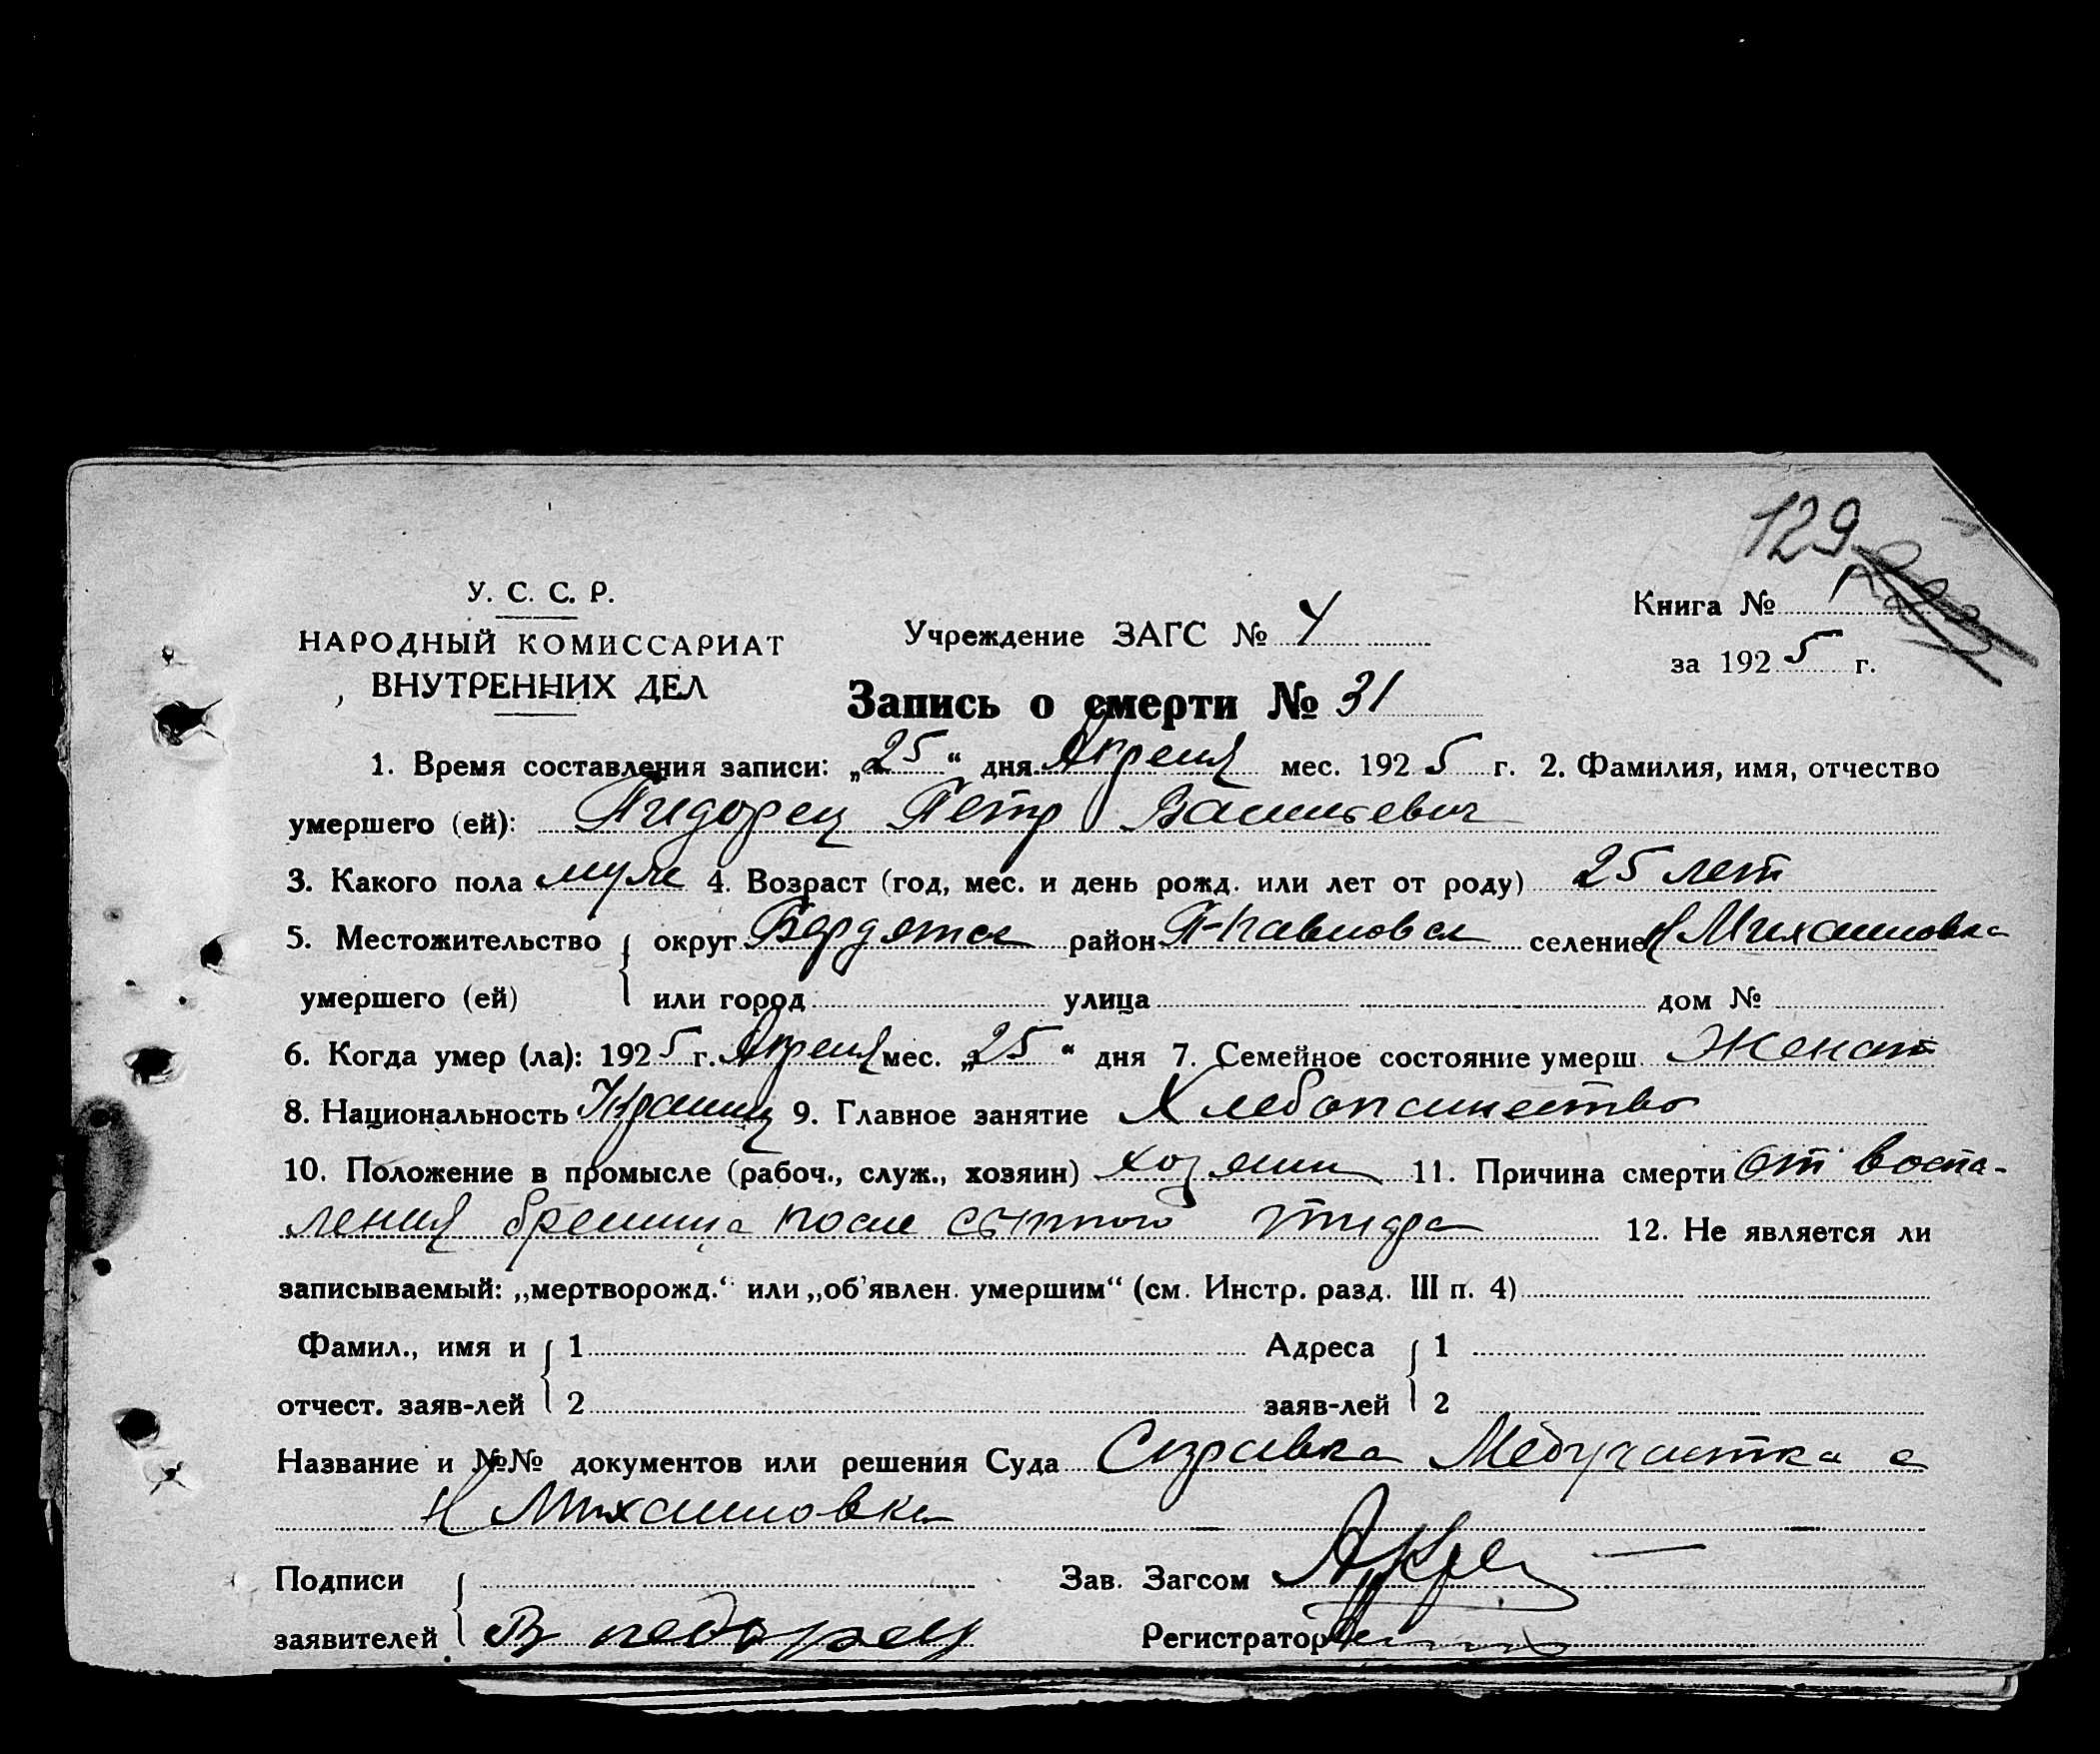 129
У. С. С. Р.
НАРОДНЫЙ КОМИССАРИАТ
ВНУТРЕННИХ ДЕЛ
Учреждение ЗАГС № 4
Книга № 1
за 1925 г.
Запись о смерти № 31
1. Время составления записи: „25“ дня Апреля мес. 1925 г. 2. Фамилия, имя, отчество
умершего (ей): Пидорец Петр Васильевич
3. Какого пола муж 4. Возраст (год, мес. и день рожд. или лет от роду) 25 лет
5. Местожительство округ Бердянск район П-Павловск селение Н Михайловка
умершего (ей) или город улица дом №
6. Когда умер (ла): 1925 г. Апреля мес. „25“ дня 7. Семейное состояние умерш. Женат
8. Национальность Украинец 9. Главное занятие Хлебопашество
10. Положение в промысле (рабоч., служ., хозяин) хозяин 11. Причина смерти от воспа-
ления брюшина после сыпного тифа 12. Не является ли
записываемый: „мертворожд.“ или „об’явлен. умершим“ (см. Инстр. разд. III п. 4)
Фамил., имя и 1 Адреса 1
отчест. заяв-лей 2 заяв-лей 2
Название и №№ документов или решения Суда Справка Медучастка с
Н Михайловка
Подписи Зав. Загсом
заявителей В педорец Регистратор